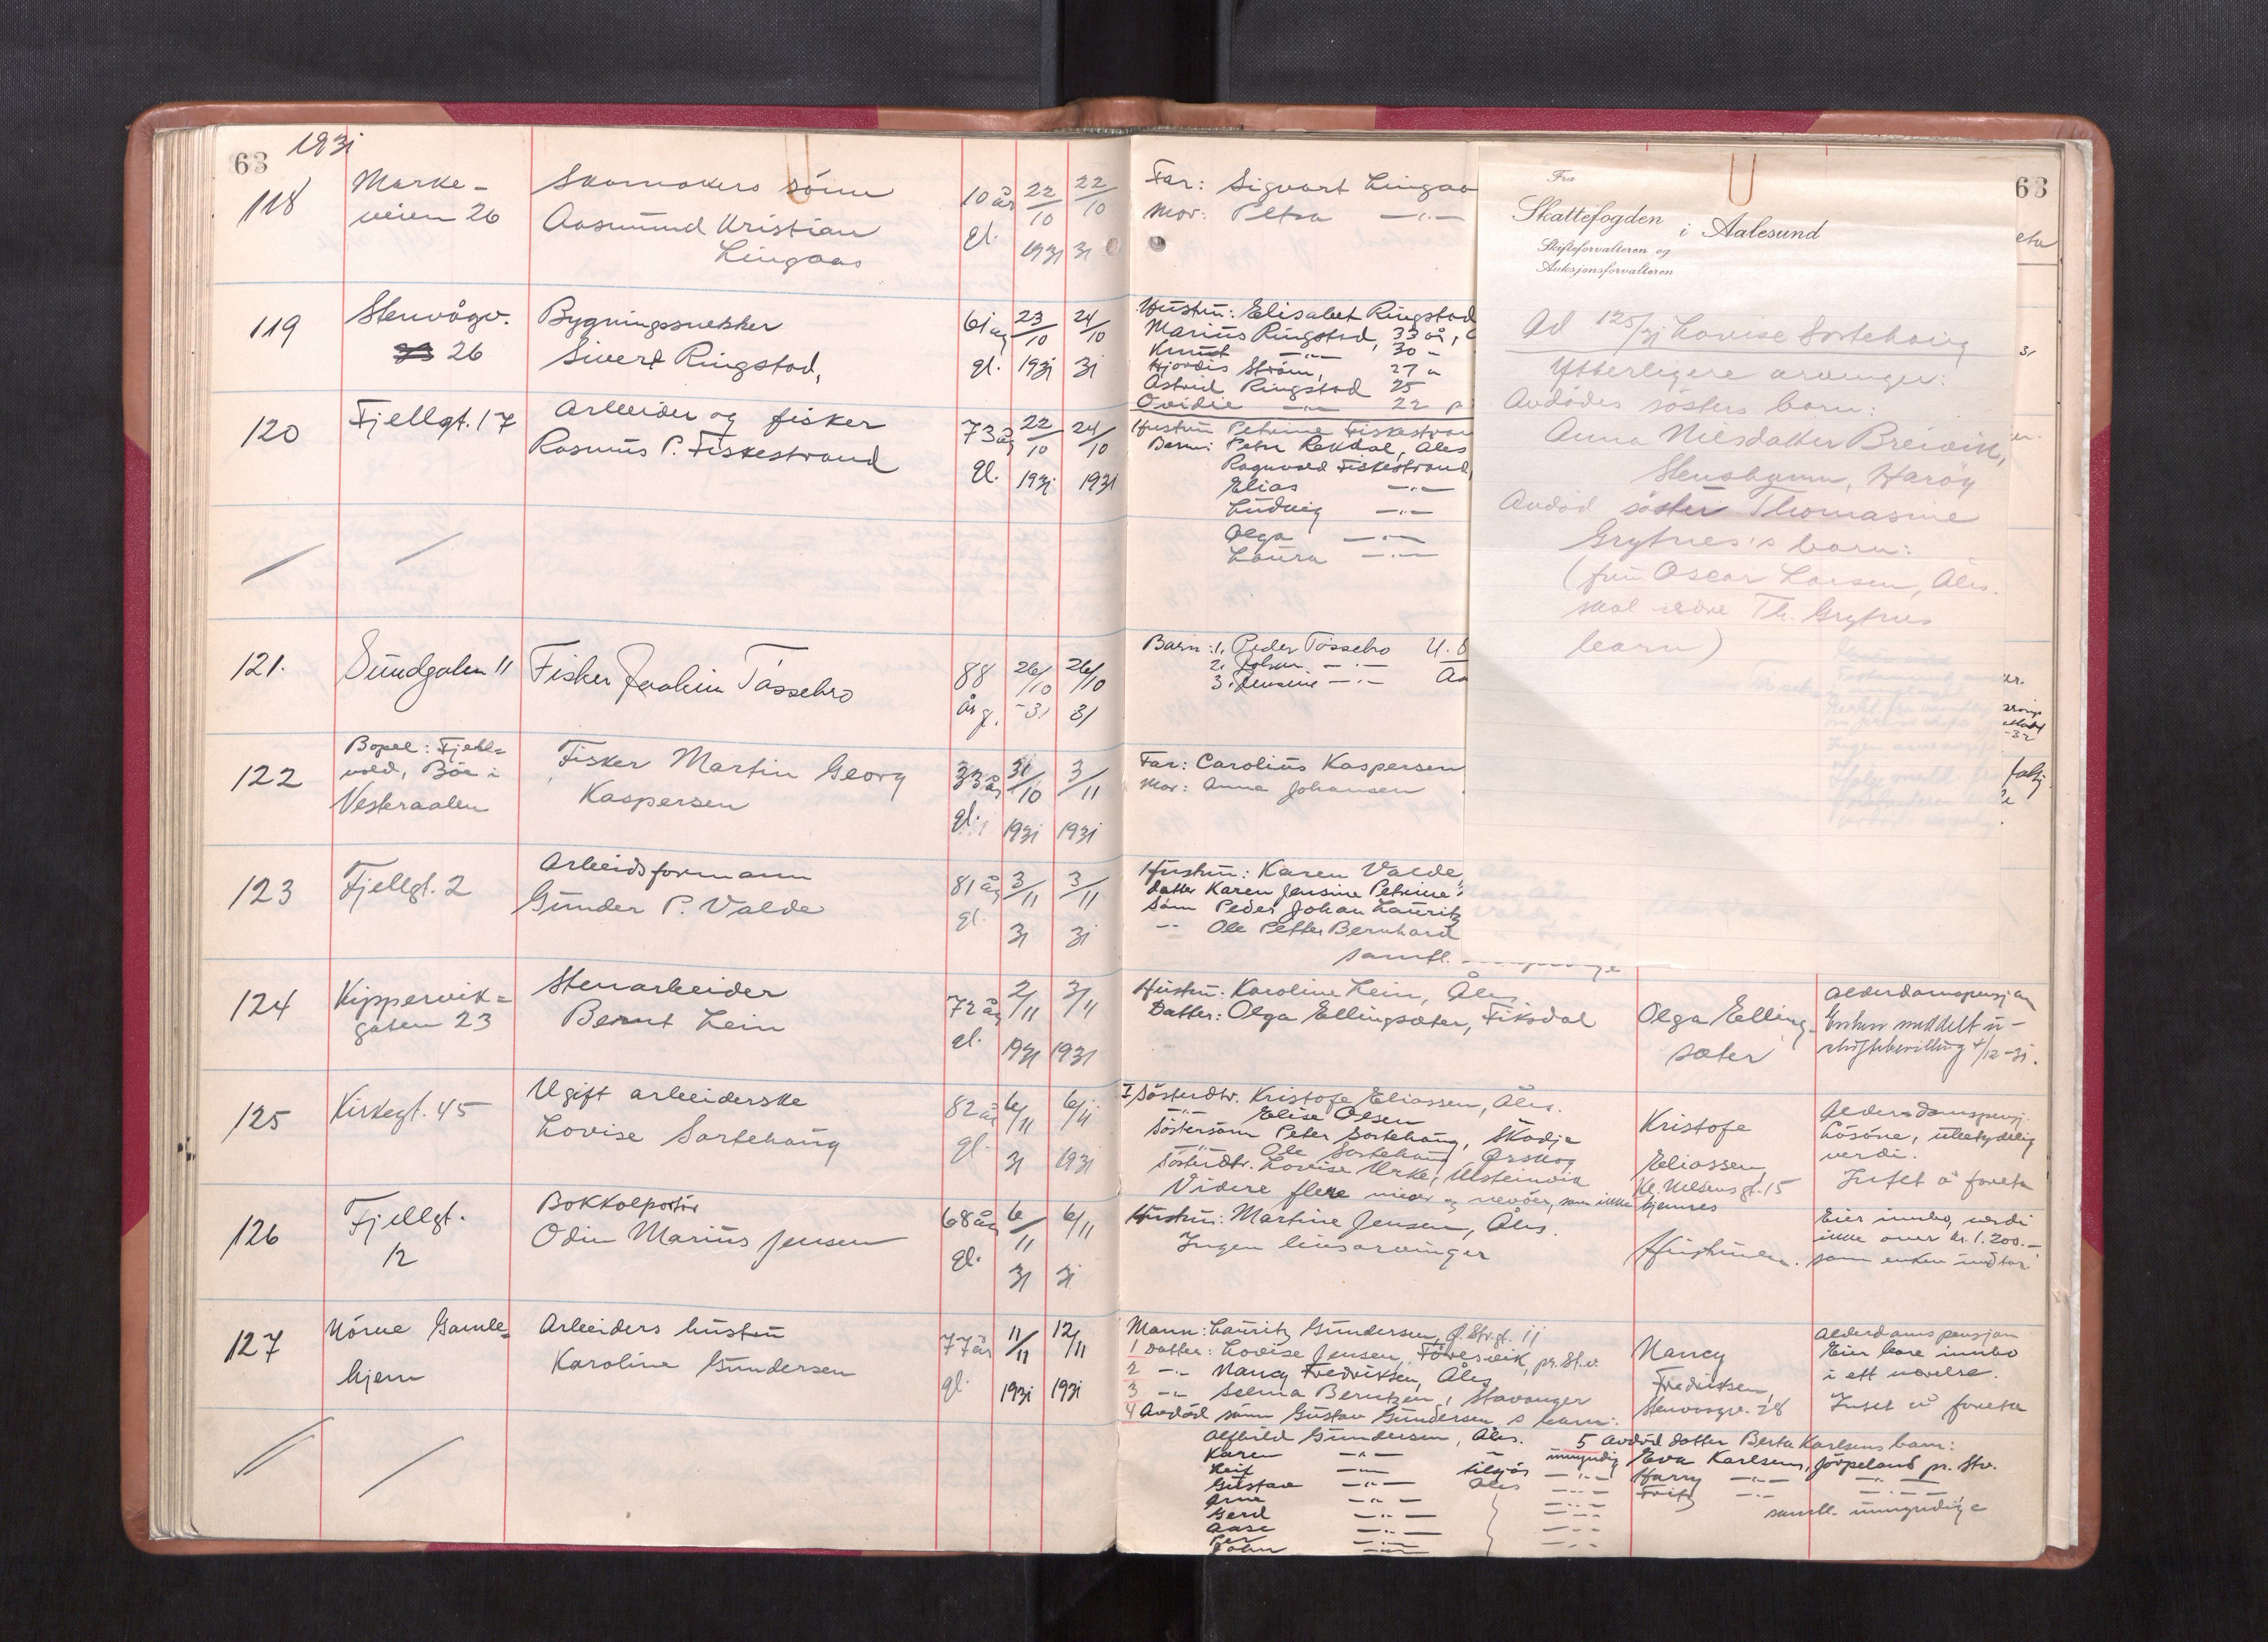 63 1931
118
Marke-
veien 26
Skomakers sönn
Aasmund Kristian
Lingaas
10 år
gl.
22/10
1931
22/10
31
Far: Sigvart Lingaa
Mor: Petra —"—
119
Stenvågv.
26
Bygningssnekker
Sivert Ringstad,
61 år
gl.
23/10
1931
24/10
31
Hustru: Elisabet Ringstad
Marius Ringstad, 33 år,
Knut —"— 30 -
Hjördis Ström, 27 "
Astrid Ringstad 25
Ovidie —"— 22
120
Fjellgt. 17
Arbeider og fisker
Rasmus P. Fiskestrand
73 år
gl.
22/10
1931
24/10
1931
Hustru Petrine Fiskestran
Barn: Petra Rekdal, Ales
Ragnvald Fiskestrand,
Elias —"—
Ludvig —"—
Olga —"—
Laura —"—
121.
Sundgaten 11
Fisker Joakim Tässebro
88
år g.
26/10
-31
26/10
31
Barn: 1. Peder Tössebro U.S
2. Johan —"—
3. Jensine —"—
122
Bopel: Fjell=
vold, Böe i
Vesteraalen
Fisker Martin Georg
Kaspersen
33 år
gl.
31/10
1931
3/11
1931
Far: Carolius Kaspersen
Mor: Anna Johansen
123
Fjellgt. 2
Arbeidsformann
Gunder P. Valde
81 år
gl.
3/11
31
3/11
31
Hustru: Karen Valde,
datter Karen Jensine Petrine
sönn Peder Johan Lauritz
-"- Ole Petter Bernhard
samtl.
124
Kippervik=
gaten 23
Stenarbeider
Bernt Lein
72 år
gl.
2/11
1931
3/11
1931
Hustru: Karoline Lein, Åles.
Datter: Olga Ellingsæter, Fiksdal
Olga Elling-
sæter
Alderdomspensjon
Enken meddelt u-
skiftebevilling 4/12-31.
125
Kirkegt. 45
Ugift arbeiderske
Lovise Sortehaug
82 år
gl.
6/11
31
6/11
1931
I Sösterdtr. Kristofe Eliassen, Åles.
—"— Elise Olsen
Söstersönn Peter Sortehaug, Skodje
—"— Ole Sortehaug Ørskog
Sösterdtr. Lovise Urke, Ulsteinvik
Videre flere nieser og nevöer, som ikke kjennes
Kristofe
Eliassen,
Kl. Nilsens gt. 15
Alderdomspensj.
Lösöre, ubetydelig
verdi.
Intet å foreta
126
Fjellgt.
12
Bokkolportör
Odin Marius Jensen
68 år
gl.
6/11
31
6/11
31
Hustru: Martine Jensen, Åles.
Ingen livsarvinger
Hustruen.
Eier innbo, verdi
ikke over kr. 1.200.-
som enken inntar
127
Nörve Gamle=
hjem
Arbeiders hustru
Karoline Gundersen
77 år
gl.
11/11
1931
12/11
1931
Mann: Lauritz Gundersen, Ø. Str.gt. 11
1 Datter: Lovise Jensen, Föresvik, pr. St.v.
2 -"- Nancy Fredriksen, Åles
3 -"- Selma Berntzen, Stavanger
4 Avdöd sönn Gustav Gundersens barn:
Alfhild Gundersen, Åles.
Karen —"—
Leif —"— tilsjös
Gustav —"— Åles
Arne —"—
Gerd —"—
Aase —"—
Per —"—
John —"—
umyndig
Nancy
Fredriksen,
Stenvaagv. 28
Alderdomspensjon
Eier bare innbo
i ett værelse.
Intet å foreta
5 Avdöd datter Berta Karlsens barn:
Eva Karlsen, Jörpeland pr. Stv.
Harry —"— —"—
Fritz —"— —"—
samtl. umyndige
63
Fra
Skattefogden i Aalesund
Skifteforvalteren og
Auksjonsforvalteren
Ad 125/31 Lovise Sortehaug
Ytterligere arvinger:
Avdödes sösters barn:
Anna Nilsdatter Breivik,
Stenshamn, Haröy
Avdöd söster Thomasine
Grytnes's barn:
(fru Oscar Larsen, Åles.
skal være Th. Grytnes
barn)